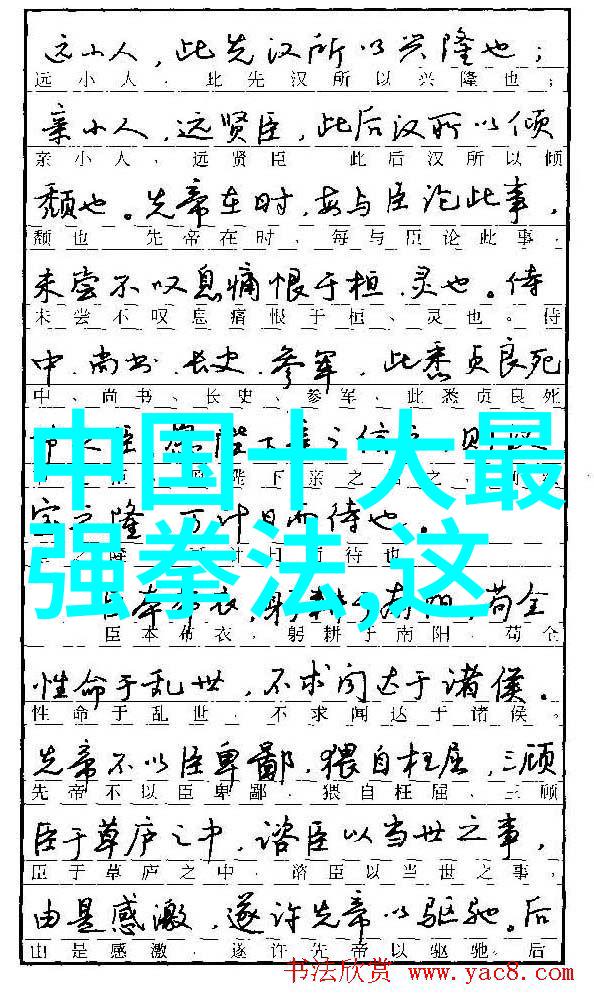 远小人，此先汉所以兴隆也；
远小人，此先汉所以兴隆也；
亲小人，远贤臣，此后汉所以倾
亲小人，远贤臣 此后汉所以倾
颓也。先帝在时，每与臣论此事，
颓也 先帝在时，每与臣论此事，
未尝不叹息痛恨于桓、灵也。侍
未尝不叹息痛恨于桓、灵也。侍
中、尚书、长史、参军，此悉贞良死
中、尚书、长史、参军、此悉贞良死
中国十大最
下亲之
之隆，可计日而待也。
计日而待也
强拳法,这
臣本布衣，躬耕于南阳，苟全
臣本布衣，躬耕于南阳，苟全
性命于乱世，不求闻达于诸侯。
性命于乱世，不求闻达于诸侯。
先帝不以臣卑鄙，猥自枉屈，三顾
先帝不以臣卑鄙，猥自枉屈、三顾
臣于草庐之中，谘臣以当世之事，
臣于草庐之中，谘臣以当世之事，
由是感激，遂许先帝以驱驰。后
由是感激，遂许先帝以驱驰。后
书法欣赏 www.yac8.com